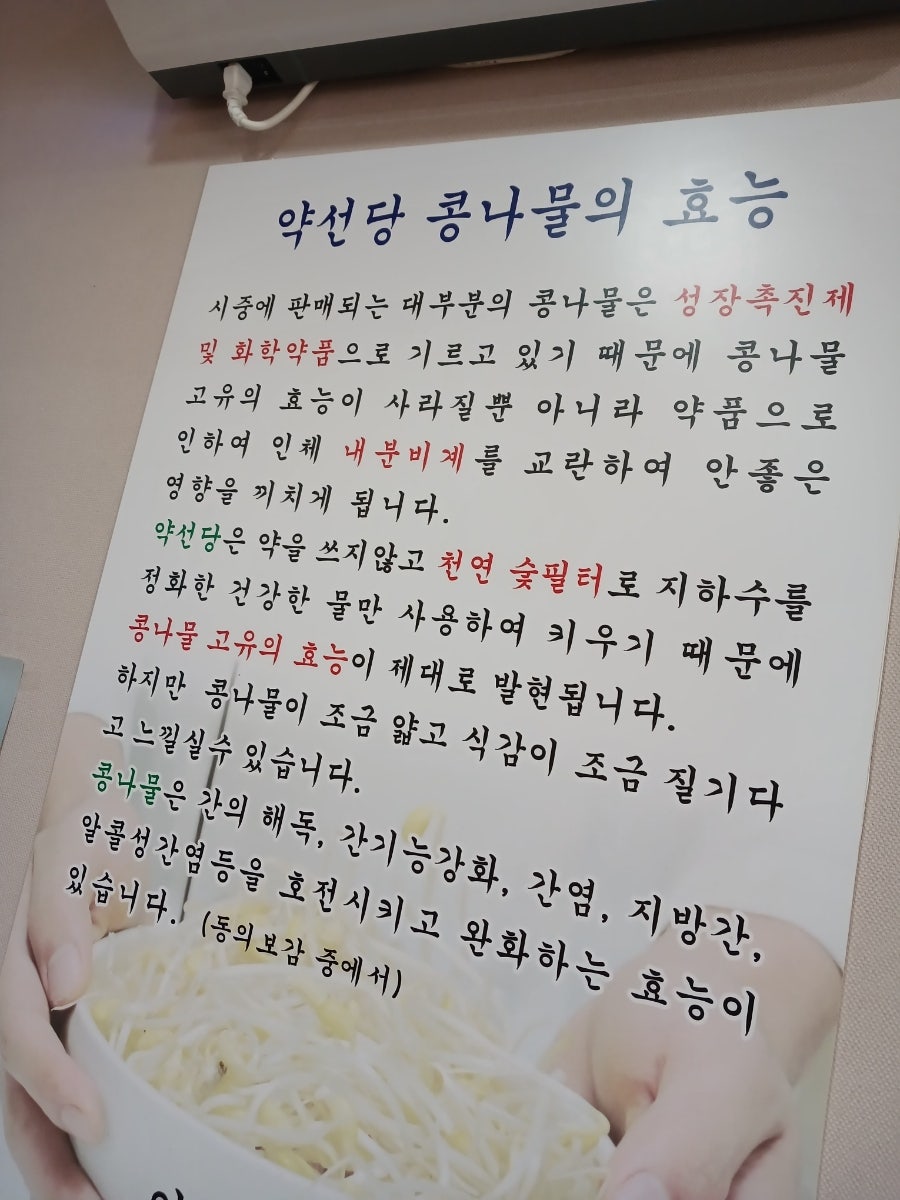 약선당 콩나물의 효능
시중에 판매되는 대부분의 콩나물은 성장촉진제
및 화학약품으로 기르고 있기 때문에 콩나물
고유의 효능이 사라질뿐 아니라 약품으로
인하여 인체 내분비계를 교란하여 안좋은
영향을 끼치게 됩니다.
약선당은 약을 쓰지않고 천연 숯필터로 지하수를
정화한 건강한 물만 사용하여 키우기 때문에
콩나물 고유의 효능이 제대로 발현됩니다.
하지만 콩나물이 조금 얇고 식감이 조금 질기다
고 느낄실수 있습니다.
콩나물은 간의 해독, 간기능강화, 간염, 지방간,
알콜성간염등을 호전시키고 완화하는 효능이
있습니다. (동의보감 중에서)